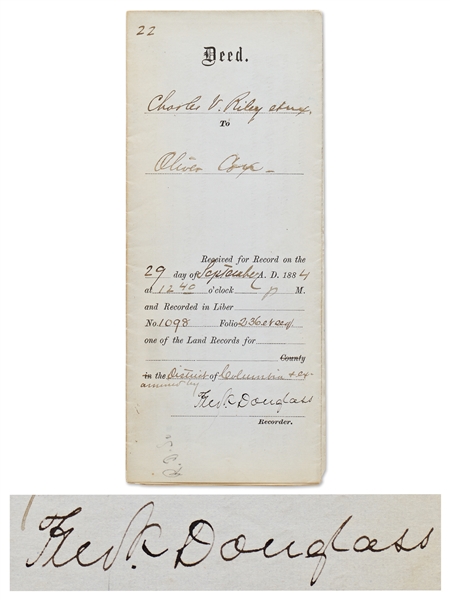 22
Deed.
Charles V. Riley et ux.
To
Oliver Cox
Received for Record on the
29 day of September A. D. 1884
at 12 40 o'clock p M.
and Recorded in Liber
No. 1098 Folio 236 et seq
one of the Land Records for
County
in the District of Columbia & ex-
amined by
Fred.k Douglass
Recorder.
Fred.k Douglass